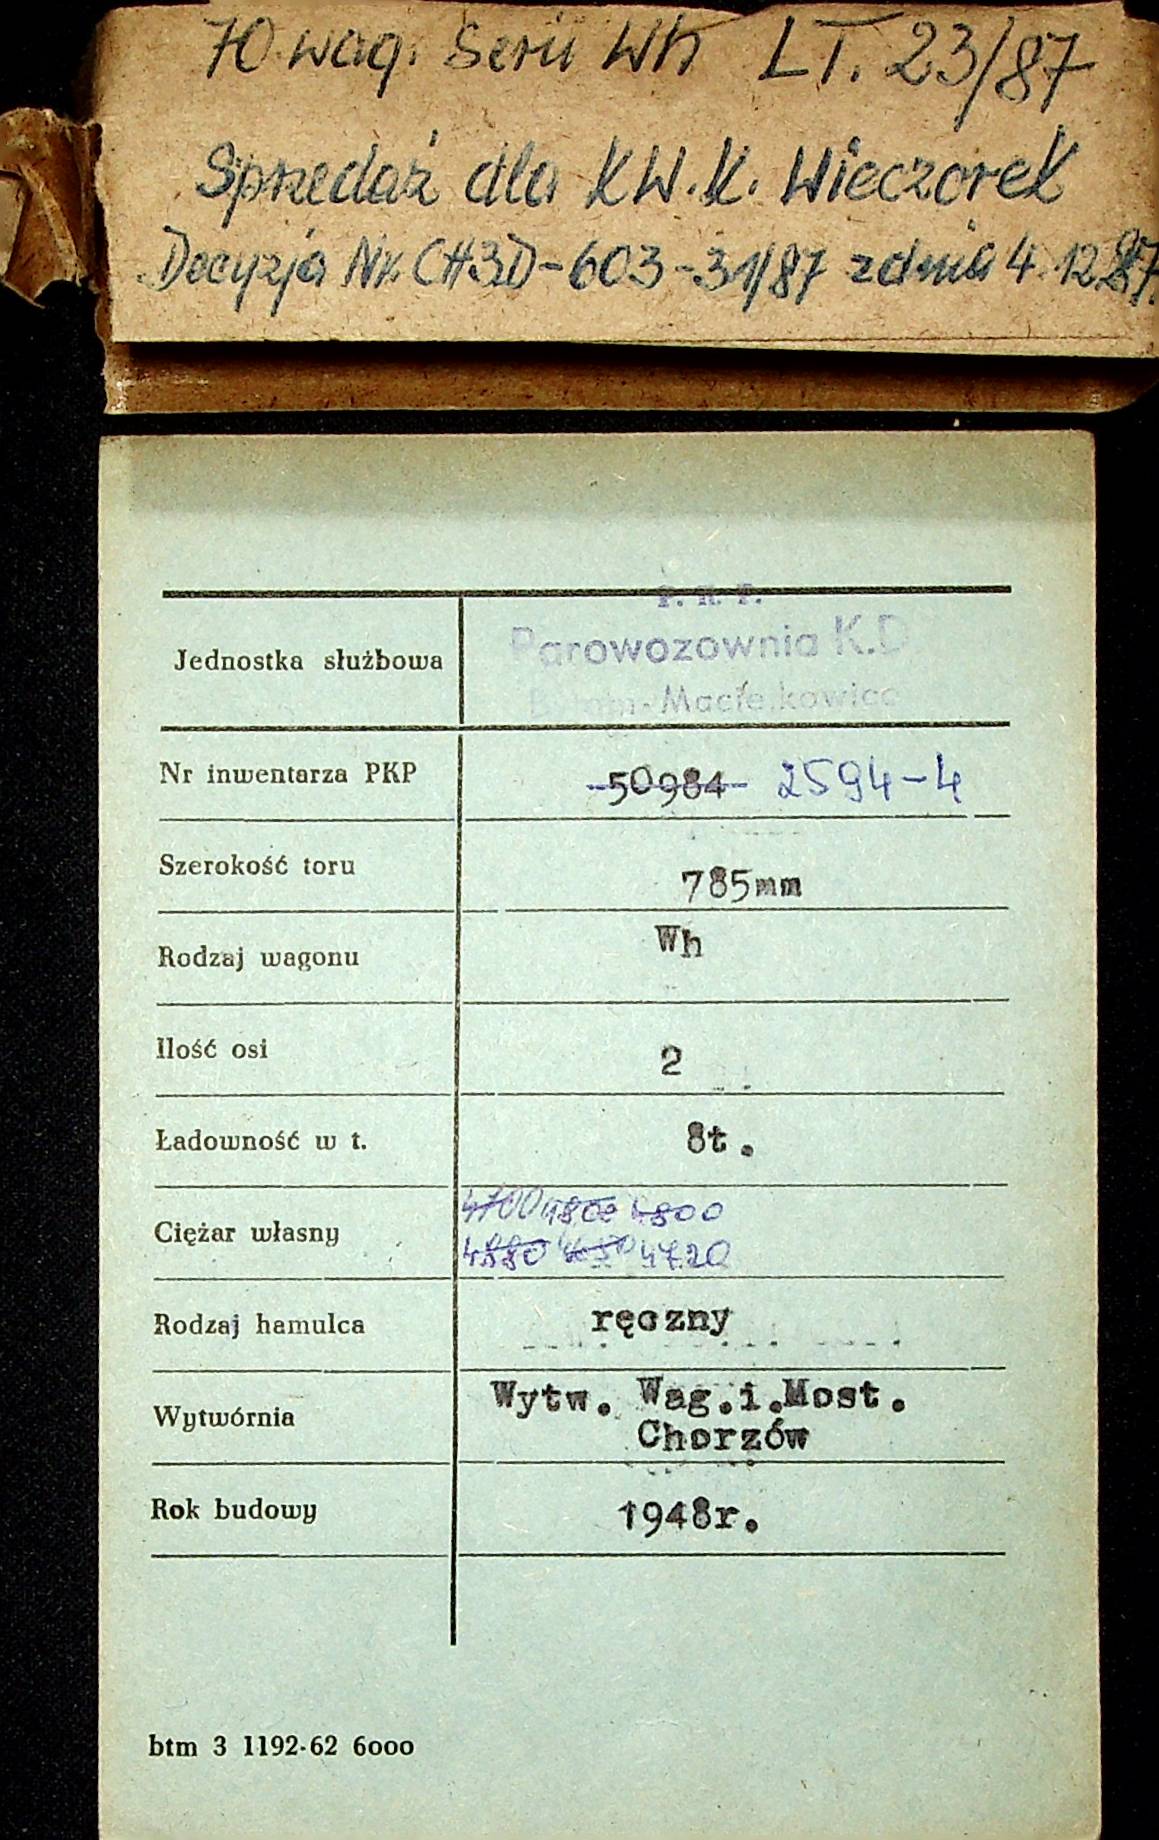 70 wag. Serii Wh LT. 23/87
Sprzedaż dla KW.K. Wieczorek
Decyzja Nr. CH3D-603-31/87 z dnia 4.12.87.
P. K. P.
Jednostka służbowa Parowozownia K.D
Bytom-Maciejkowice
Nr inwentarza PKP 50984 2594-4
Szerokość toru 785mm
Rodzaj wagonu Wh
Ilość osi 2
Ładowność w t. 8t.
4700 4800 4800
Ciężar własny
4880 4720
Rodzaj hamulca ręczny
Wytw. Wag.i.Most.
Wytwórnia
Chorzów
Rok budowy 1948r.
btm 3 1192-62 6000